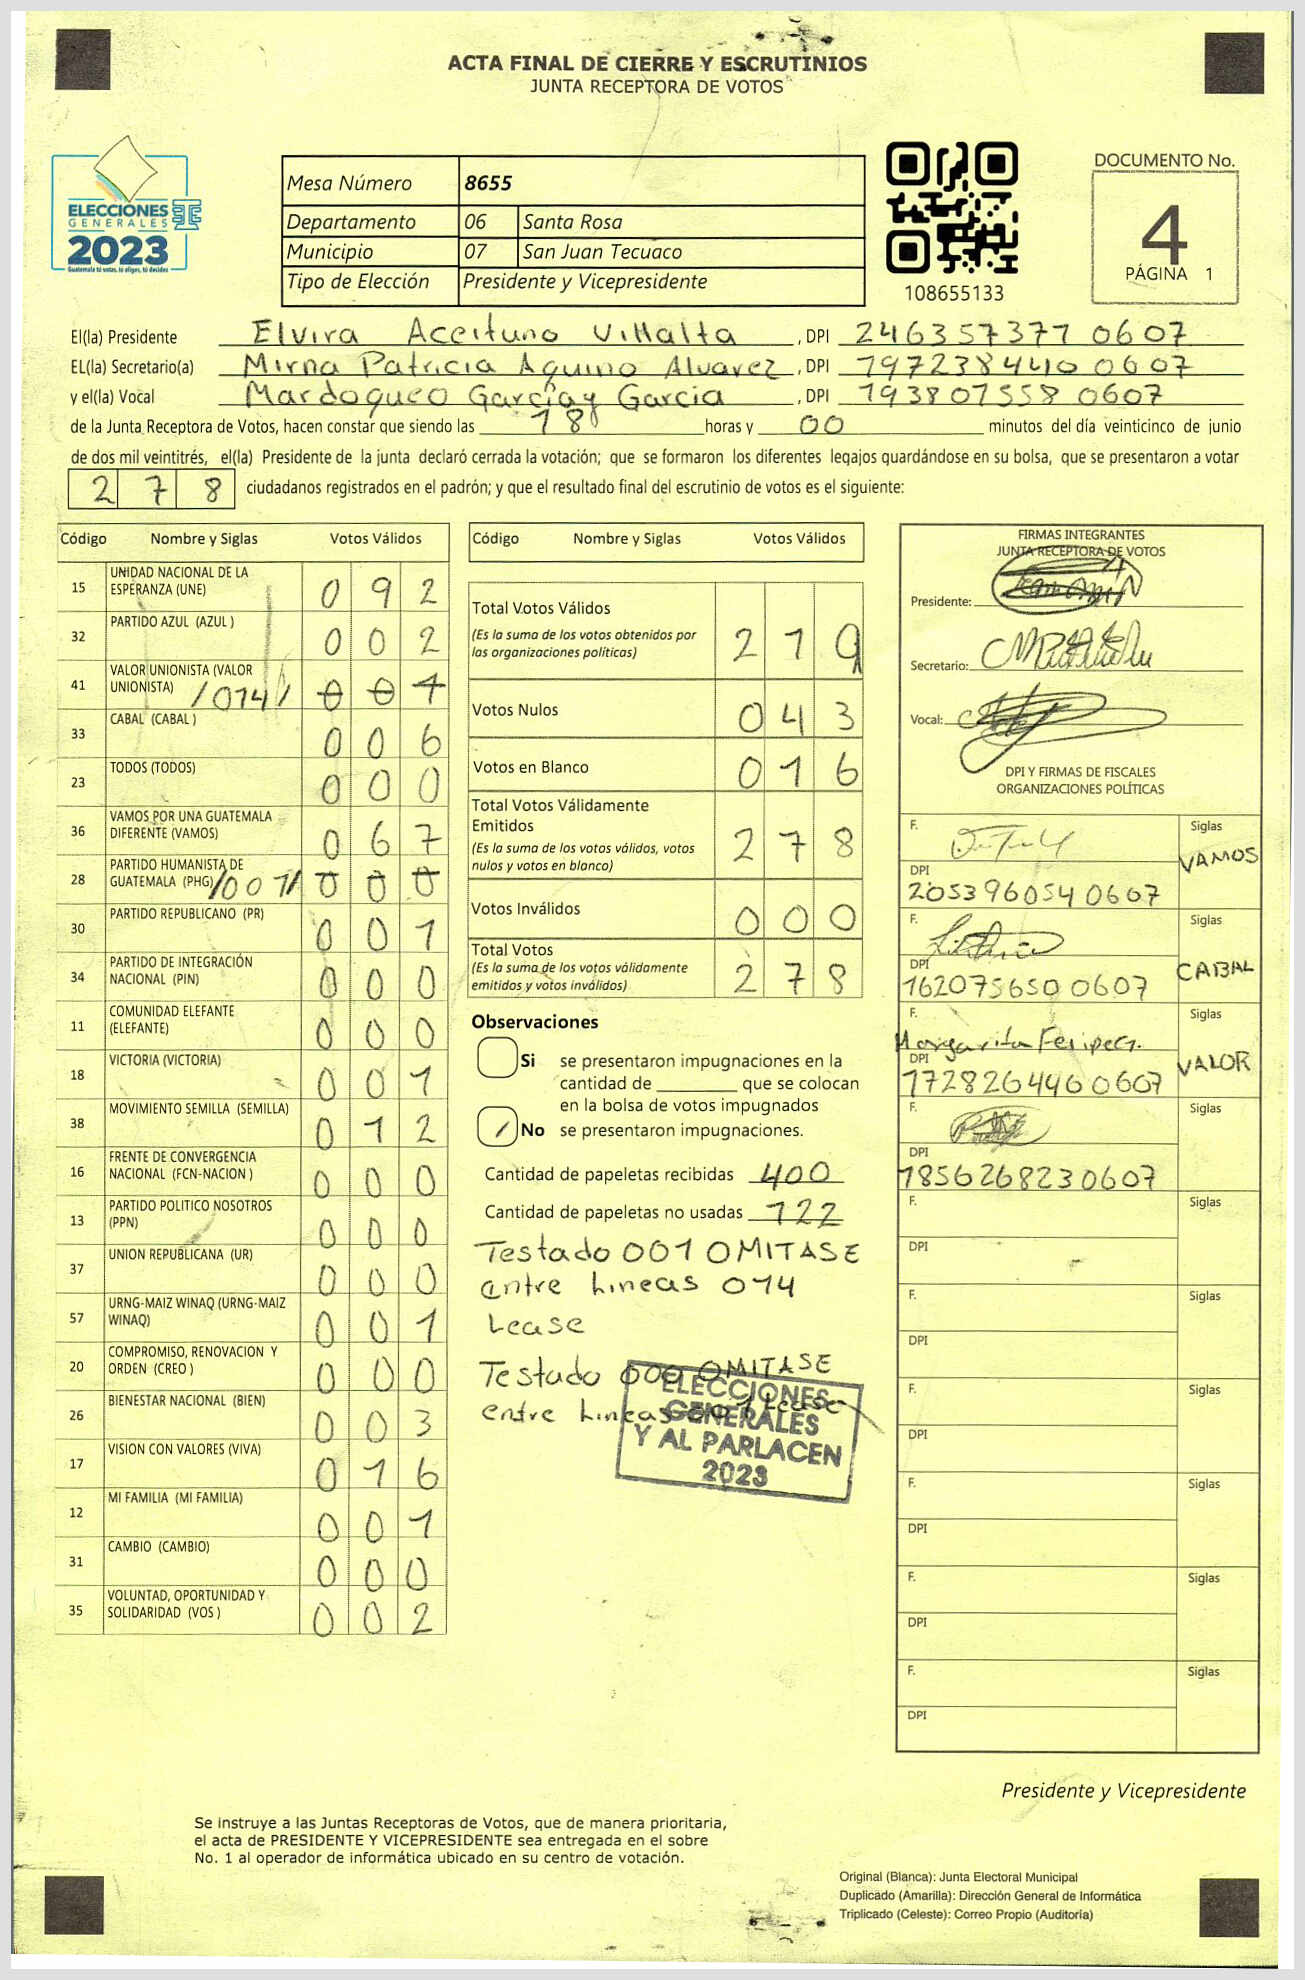 ACTA FINAL DE CIERRE Y ESCRUTINIOS
JUNTA RECEPTORA DE VOTOS
ELECCIONES
GENERALES
2023
Guatemala tú votas, tú eliges, tú decides
Mesa Número 8655
Departamento 06 Santa Rosa
Municipio 07 San Juan Tecuaco
Tipo de Elección Presidente y Vicepresidente
108655133
DOCUMENTO No.
4
PÁGINA 1
El(la) Presidente Elvira Aceituno Villalta, DPI 246357377 0607
EL(la) Secretario(a) Mirna Patricia Aquino Alvarez, DPI 197238440 0607
y el(la) Vocal Mardoqueo García y Garcia, DPI 193807558 0607
de la Junta Receptora de Votos, hacen constar que siendo las 18 horas y 00 minutos del día veinticinco de junio
de dos mil veintitrés, el(la) Presidente de la junta declaró cerrada la votación; que se formaron los diferentes legajos guardándose en su bolsa, que se presentaron a votar
278 ciudadanos registrados en el padrón; y que el resultado final del escrutinio de votos es el siguiente:
Código Nombre y Siglas Votos Válidos
15 UNIDAD NACIONAL DE LA
ESPERANZA (UNE) 092
32 PARTIDO AZUL (AZUL ) 002
41 VALOR UNIONISTA (VALOR
UNIONISTA) /014/ 001
33 CABAL (CABAL ) 006
23 TODOS (TODOS) 000
36 VAMOS POR UNA GUATEMALA
DIFERENTE (VAMOS) 067
28 PARTIDO HUMANISTA DE
GUATEMALA (PHG) /001/ 000
30 PARTIDO REPUBLICANO (PR) 001
34 PARTIDO DE INTEGRACIÓN
NACIONAL (PIN) 000
11 COMUNIDAD ELEFANTE
(ELEFANTE) 000
18 VICTORIA (VICTORIA) 001
38 MOVIMIENTO SEMILLA (SEMILLA) 012
16 FRENTE DE CONVERGENCIA
NACIONAL (FCN-NACION ) 000
13 PARTIDO POLITICO NOSOTROS
(PPN) 000
37 UNION REPUBLICANA (UR) 000
57 URNG-MAIZ WINAQ (URNG-MAIZ
WINAQ) 001
20 COMPROMISO, RENOVACION Y
ORDEN (CREO ) 000
26 BIENESTAR NACIONAL (BIEN) 003
17 VISION CON VALORES (VIVA) 016
12 MI FAMILIA (MI FAMILIA) 001
31 CAMBIO (CAMBIO) 000
35 VOLUNTAD, OPORTUNIDAD Y
SOLIDARIDAD (VOS ) 002
Código Nombre y Siglas Votos Válidos
Total Votos Válidos
(Es la suma de los votos obtenidos por
las organizaciones políticas) 219
Votos Nulos 043
Votos en Blanco 016
Total Votos Válidamente
Emitidos
(Es la suma de los votos válidos, votos
nulos y votos en blanco) 278
Votos Inválidos 000
Total Votos
(Es la suma de los votos válidamente
emitidos y votos inválidos) 278
Observaciones
Si se presentaron impugnaciones en la
cantidad de ________ que se colocan
en la bolsa de votos impugnados
No se presentaron impugnaciones.
Cantidad de papeletas recibidas 400
Cantidad de papeletas no usadas 122
Testado 001 OMITASE
entre Lineas 014
Lease
Testado 000 OMITASE
entre Lineas 001 Lease
ELECCIONES
GENERALES
Y AL PARLACEN
2023
FIRMAS INTEGRANTES
JUNTA RECEPTORA DE VOTOS
Presidente:
Secretario:
Vocal:
DPI Y FIRMAS DE FISCALES
ORGANIZACIONES POLÍTICAS
F. Siglas
VAMOS
DPI
205396054 0607
F. Siglas
CABAL
DPI
162075650 0607
F. Siglas
Margarita Felipe G.
VALOR
DPI
172826446 0607
F. Siglas
DPI
185626823 0607
F. Siglas
DPI
F. Siglas
DPI
F. Siglas
DPI
F. Siglas
DPI
F. Siglas
DPI
F. Siglas
DPI
Presidente y Vicepresidente
Se instruye a las Juntas Receptoras de Votos, que de manera prioritaria,
el acta de PRESIDENTE Y VICEPRESIDENTE sea entregada en el sobre
No. 1 al operador de informática ubicado en su centro de votación.
Original (Blanca): Junta Electoral Municipal
Duplicado (Amarilla): Dirección General de Informática
Triplicado (Celeste): Correo Propio (Auditoría)